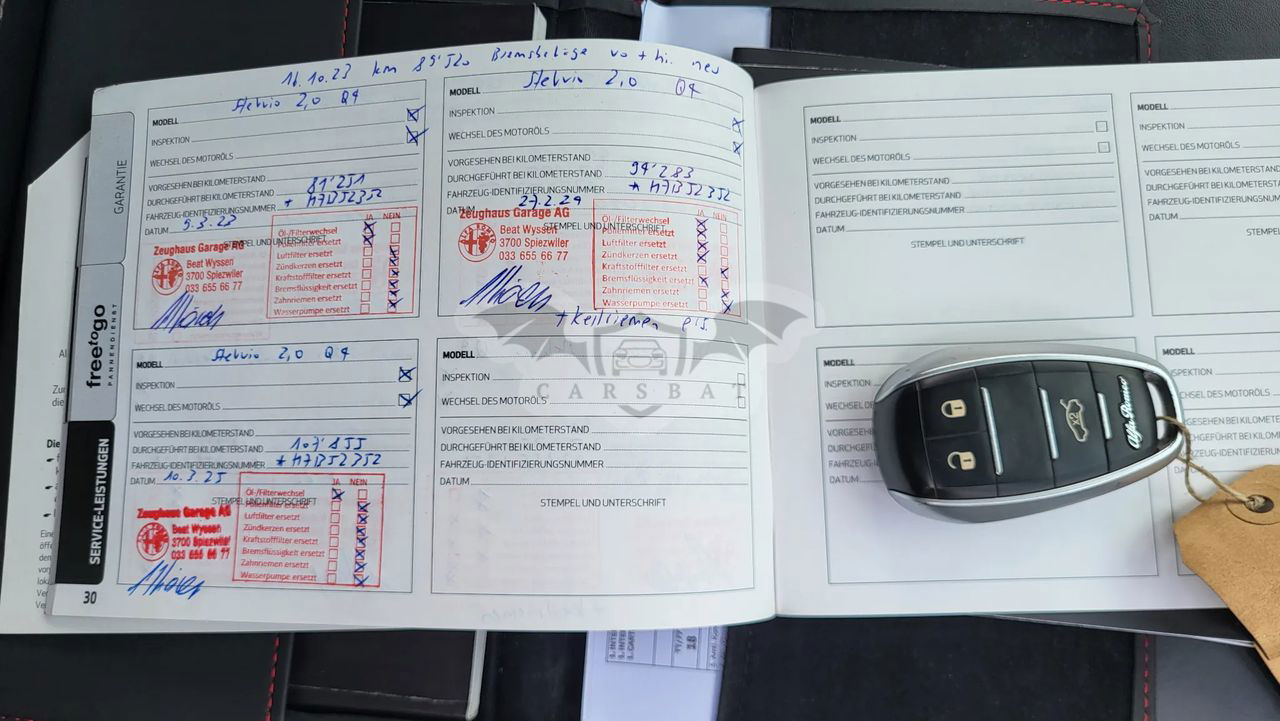 16.10.23 km 89'520 Bremsbeläge vo + hi. neu
GARANTIE
free to go
PANNENDIENST
SERVICE-LEISTUNGEN
Stelvio 2,0 Q4
MODELL
INSPEKTION
WECHSEL DES MOTORÖLS
VORGESEHEN BEI KILOMETERSTAND
DURCHGEFÜHRT BEI KILOMETERSTAND 81'251
FAHRZEUG-IDENTIFIZIERUNGSNUMMER * M7B52352
DATUM 9.3.23
STEMPEL UND UNTERSCHRIFT
Zeughaus Garage AG
Beat Wyssen
3700 Spiezwiler
033 655 66 77
JA NEIN
Öl-/Filterwechsel
Pollenfilter ersetzt
Luftfilter ersetzt
Zündkerzen ersetzt
Kraftstofffilter ersetzt
Bremsflüssigkeit ersetzt
Zahnriemen ersetzt
Wasserpumpe ersetzt
Stelvio 2,0 Q4
MODELL
INSPEKTION
WECHSEL DES MOTORÖLS
VORGESEHEN BEI KILOMETERSTAND
DURCHGEFÜHRT BEI KILOMETERSTAND 94'283
FAHRZEUG-IDENTIFIZIERUNGSNUMMER * M7B52352
DATUM 27.2.24
STEMPEL UND UNTERSCHRIFT
Zeughaus Garage AG
Beat Wyssen
3700 Spiezwiler
033 655 66 77
JA NEIN
Öl-/Filterwechsel
Pollenfilter ersetzt
Luftfilter ersetzt
Zündkerzen ersetzt
Kraftstofffilter ersetzt
Bremsflüssigkeit ersetzt
Zahnriemen ersetzt
Wasserpumpe ersetzt
+ Keilriemen ers.
Stelvio 2,0 Q4
MODELL
INSPEKTION
WECHSEL DES MOTORÖLS
VORGESEHEN BEI KILOMETERSTAND
DURCHGEFÜHRT BEI KILOMETERSTAND 107'855
FAHRZEUG-IDENTIFIZIERUNGSNUMMER * M7B52352
DATUM 10.3.25
STEMPEL UND UNTERSCHRIFT
Zeughaus Garage AG
Beat Wyssen
3700 Spiezwiler
033 655 66 77
JA NEIN
Öl-/Filterwechsel
Pollenfilter ersetzt
Luftfilter ersetzt
Zündkerzen ersetzt
Kraftstofffilter ersetzt
Bremsflüssigkeit ersetzt
Zahnriemen ersetzt
Wasserpumpe ersetzt
30
MODELL
INSPEKTION
WECHSEL DES MOTORÖLS
VORGESEHEN BEI KILOMETERSTAND
DURCHGEFÜHRT BEI KILOMETERSTAND
FAHRZEUG-IDENTIFIZIERUNGSNUMMER
DATUM
STEMPEL UND UNTERSCHRIFT
CARSBAT
MODELL
INSPEKTION
WECHSEL DES MOTORÖLS
VORGESEHEN BEI KILOMETERSTAND
DURCHGEFÜHRT BEI KILOMETERSTAND
FAHRZEUG-IDENTIFIZIERUNGSNUMMER
DATUM
STEMPEL UND UNTERSCHRIFT
MODELL
INSPEKTION
WECHSEL DES MOTORÖLS
VORGESEHEN BEI KILOMETERSTAND
DURCHGEFÜHRT BEI KILOMET
FAHRZEUG-IDENTIFIZIERUNG
DATUM
STEMPEL
MODELL
INSPEKTION
WECHSEL D
VORGESEHE
DURCHGEF
FAHRZEUG-
DATUM
MODELL
Alfa Romeo
X2